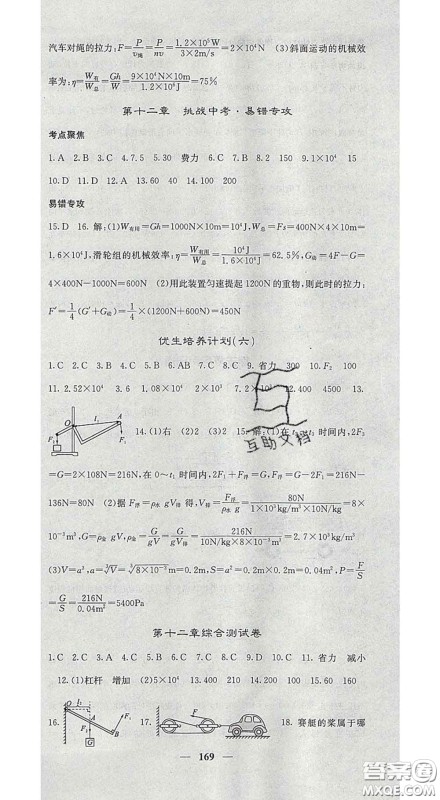 汽车对绳的拉力:F=P/v绳=P/nv=1.2×10⁵W/3×2m/s=2×10⁴N (3)斜面运动的机械效
率为:η=W有/W总=Gh/W=9×10⁴N×10m/1.2×10⁶J=75%
第十二章 挑战中考·易错专攻
考点聚焦
1.A 2.B 3.C 4.7.5 5.30 费力 6.C 7.B 8.2 150 9.1×10⁴ 15
10.D 11.D 12.A 13.60 40 14.100 200
易错专攻
15.D 16.解:(1)W有用=Gh=1000N×10m=10⁴J,W总=Fs=400N×4×10m=
1.6×10⁴J,滑轮组的机械效率:η=W有用/W总=10⁴J/1.6×10⁴J=62.5%,G动=4F-G=
4×400N-1000N=600N (2)用此装置匀速提起1200N的重物,则此时的拉力:
F′=1/4(G′+G动)=1/4×(1200N+600N)=450N
优生培养计划(六)
1.C 2.C 3.B 4.D 5.B 6.AB 7.C 8.C 9.省力 300 10.F₂ 100
11.2.52×10⁴ 3.6 1.08×10⁴ 2×10⁴ 7.2×10³ 12.400 4500 13.
O l₁ A F₂ F₁ 14.(1)右 (2)2 (3)2 15.解:(1)在t₂~t₃时间内,2F₂
=G=2×108N=216N,在0~t₁时间内,2F₁+F浮=G,F浮=G-2F₁=216N-
136N=80N (2)据F浮=ρ水gV排得,V排=F浮/ρ水g=80N/1×10³kg/m³×10N/kg=8×
10⁻³m³,G=ρ物gV,ρ物=G/gV=G/gV排=216N/10N/kg×8×10⁻³m³=2.7×10³kg/m³
(3)V=a³,a=∛V=∛8×10⁻³m=0.2m,S=a²=0.2m×0.2m=0.04m²,P=F/S
=G/S=216N/0.04m²=5400Pa
第十二章综合测试卷
1.C 2.C 3.A 4.C 5.B 6.C 7.C 8.C 9.D 10.C 11.省力 减小
12.(1)杠杆 增加 (2)5×10⁴ 13.400 210 14.200 20 15.160 160
16. O A B F₁ G 17. 18.赛艇的桨属于哪
互助文档
169
答案圈
MXQE.COM